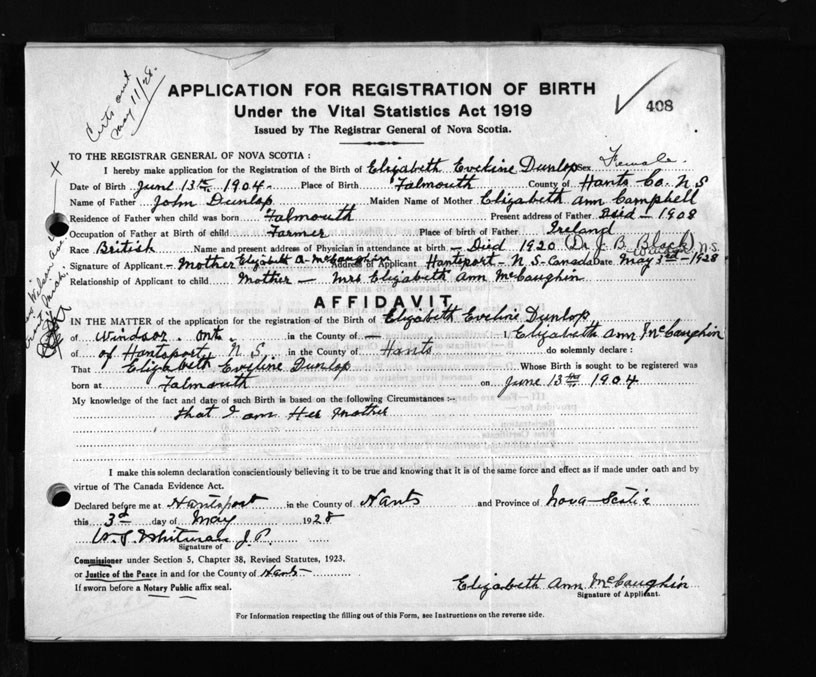 Certs sent
May 11/28.
APPLICATION FOR REGISTRATION OF BIRTH
Under the Vital Statistics Act 1919
408
Issued by The Registrar General of Nova Scotia.
TO THE REGISTRAR GENERAL OF NOVA SCOTIA :
I hereby make application for the Registration of the Birth of Elizabeth Eveline Dunlop Sex Female.
Date of Birth June 13th 1904. Place of Birth Falmouth County of Hants Co. N S
Name of Father John Dunlop Maiden Name of Mother Elizabeth Ann Campbell
Residence of Father when child was born Falmouth Present address of Father Died - 1908
Occupation of Father at Birth of child Farmer Place of birth of Father Ireland
Race British Name and present address of Physician in attendance at birth - Died 1920 (Dr J. B. Black) N.S.
Signature of Applicant - Mother Elizabeth A. McCaughin Address of Applicant Hantsport - N S - Canada Date May 3rd - 1928
Relationship of Applicant to child Mother - Mrs Elizabeth Ann McCaughin
AFFIDAVIT
IN THE MATTER of the application for the registration of the Birth of Elizabeth Eveline Dunlop
of Windsor. Ont. in the County of — I, Elizabeth Ann McCaughin
of of Hantsport, N S. in the County of Hants do solemnly declare :
That Elizabeth Eveline Dunlop Whose Birth is sought to be registered was
born at Falmouth on June 13th 1904
My knowledge of the fact and date of such Birth is based on the following Circumstances :-
that I am Her Mother
I make this solemn declaration conscientiously believing it to be true and knowing that it is of the same force and effect as if made under oath and by
virtue of The Canada Evidence Act.
Declared before me at Hantsport in the County of Hants and Province of Nova Scotia
this 3rd day of May 1928
W. S. Whitman J. P.
Signature of
Commissioner under Section 5, Chapter 38, Revised Statutes, 1923,
or Justice of the Peace in and for the County of Hants
If sworn before a Notary Public affix seal.
Elizabeth Ann McCaughin
Signature of Applicant.
For Information respecting the filling out of this Form, see Instructions on the reverse side.